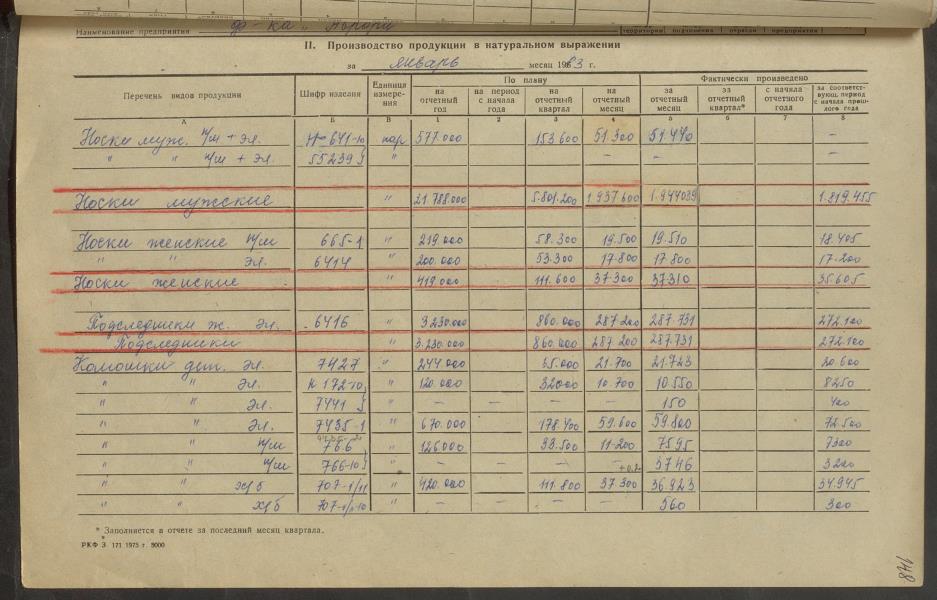 Наименование предприятия ф-ка "Аврора"
территории подчинения отрасли предприятия
II. Производство продукции в натуральном выражении
за январь месяц 1983 г.
Перечень видов продукции Шифр изделия Единица измерения По плану Фактически произведено
на отчетный год на период с начала года на отчетный квартал на отчетный месяц за отчетный месяц за отчетный квартал* с начала отчетного года за соответствующ. период с начала прошлого года
А Б В 1 2 3 4 5 6 7 8
Носки муж. п/ш + эл. 641-10 пар 577.000 153.600 51.300 51.470 —
" " п/ш + эл. 55239 " — — —
Носки мужские " 21.788.000 5.801.200 1937600 1.944089 1.819.455
Носки женские п/ш 665-1 " 219.000 58.300 19.500 19.510 18.405
" " эл. 6414 " 200.000 53.300 17.800 17.800 17.200
Носки женские " 419.000 111.600 37.300 37310 35.605
Подследники ж. эл. 6416 " 3.230.000 860.000 287.200 287.731 272.100
Подследники " 3.230.000 860.000 287.200 287.731 272.100
Колготки дет. эл. 7427 " 244.000 65.000 21.700 21.723 20.600
" " эл. К 172-10 " 120.000 32000 10.700 10.550 8250
" " эл. 7441 " — — — — 150 400
" " эл. 7435-1 " 670.000 178.400 59.600 59.800 72.500
" " п/ш 766 " 126000 33.500 11.200 7595 7300
" " п/ш 766-10 " — — — 3746 3200
" " х/б 707-1/11 " 420.000 111.800 37.300 36.923 34.945
" " х/б " — — — — 560 300
* Заполняется в отчете за последний месяц квартала.
РКФ З. 171 1975 г. 8000